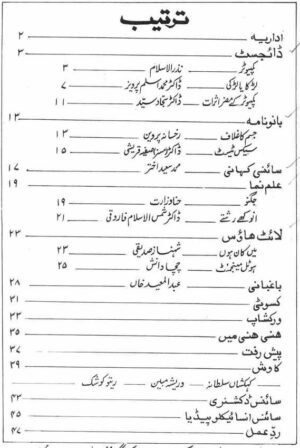 ترتیب
اداریہ ۲
ڈائجسٹ ۳
کمپیوٹر نذرالاسلام ۳
لڑکا یا لڑکی ڈاکٹر محمد اسلم پرویز ۷
کمپیوٹر کے مضر اثرات ڈاکٹر سجاد سید ۱۱
بانونامہ ۱۳
جسم کا غلاف رخسانہ پروین ۱۳
سیکس ٹیسٹ ڈاکٹر قریشی ۱۵
سائنسی کہانی محمد سعید اختر ۱۷
علم نما ۱۹
جگنو ۱۹
انوکھے رشتے ڈاکٹر شمس الاسلام فاروقی ۲۱
لائٹ ہاؤس ۲۳
میں کان ہوں شہناز صدیقی ۲۳
ہوٹل مینجمنٹ چچا دانش ۲۵
باغبانی عبدالمعید خاں ۲۸
کسوٹی ۳۱
ورکشاپ ۳۳
ھنی ھنی میں ۳۵
پیش رفت ۳۷
کاوش ۳۹
کہکشاں سلطانہ وریشہ مبین ریتو کوشک
سائنس ڈکشنری ۴۳
سائنس انسائیکلوپیڈیا ۴۵
ردِّ عمل ۴۷